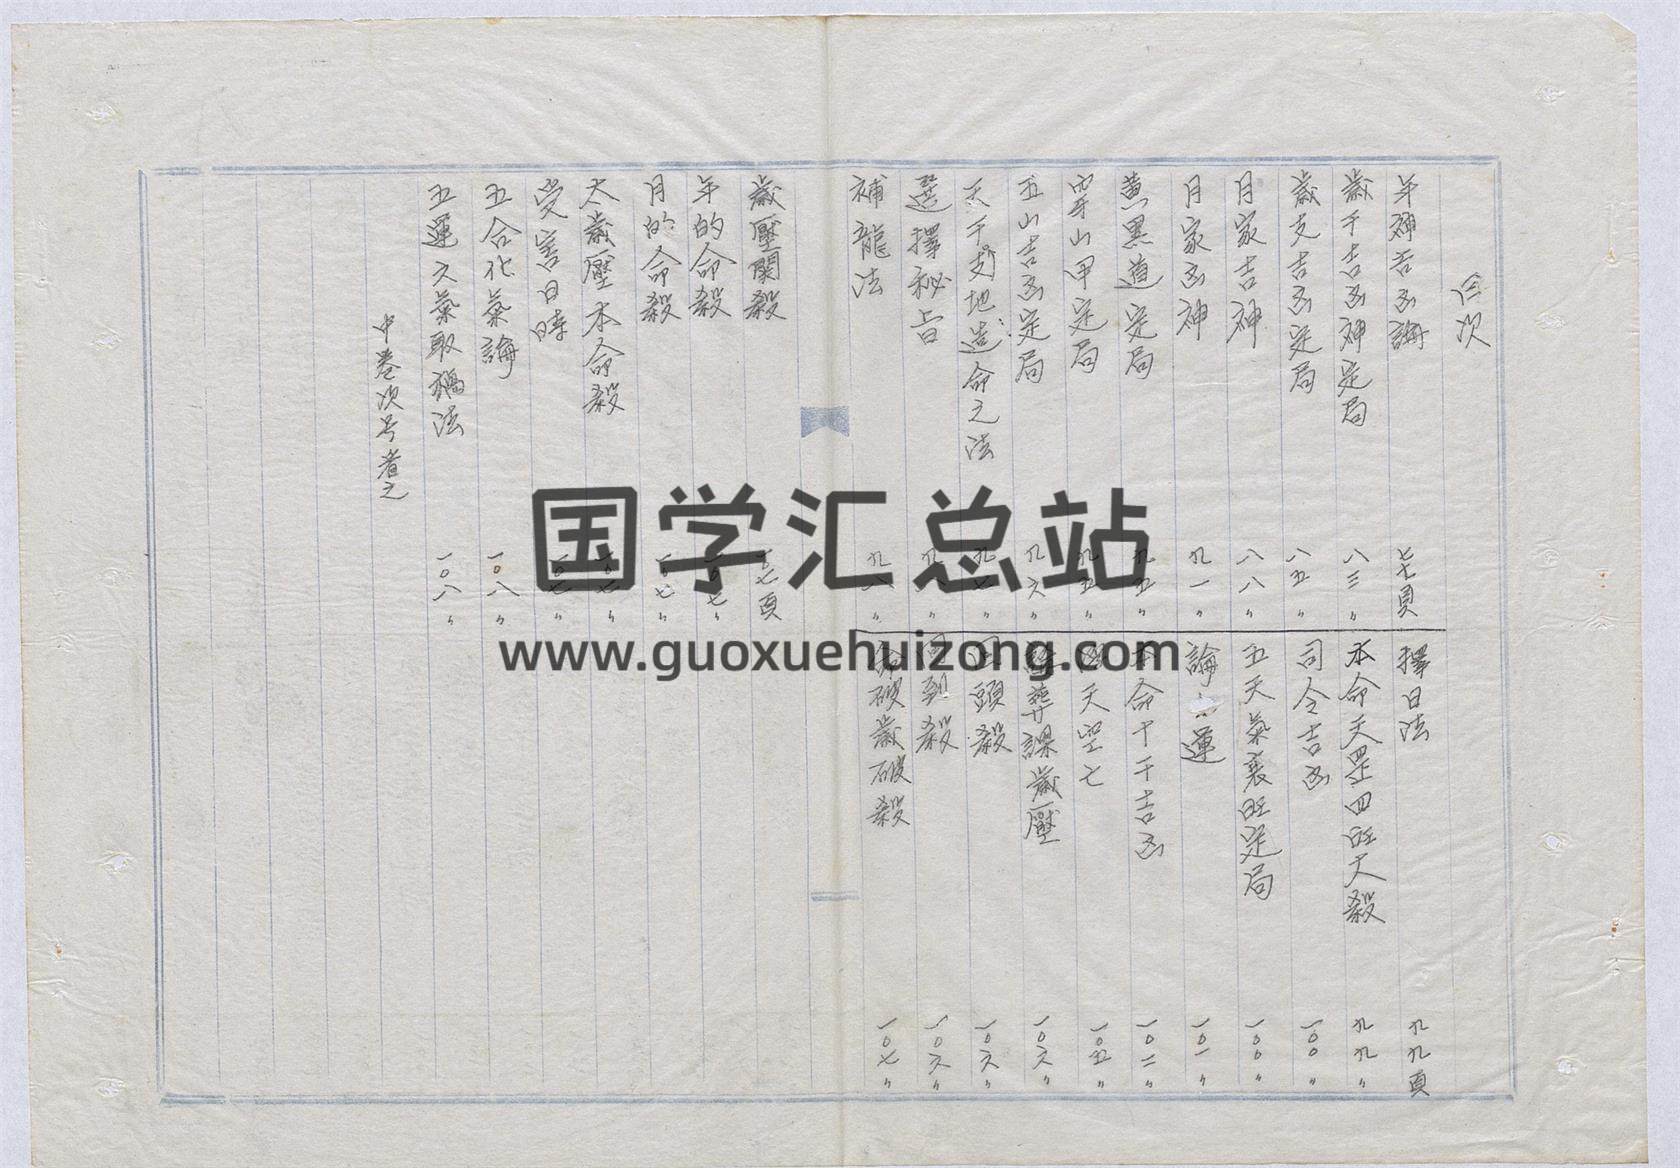 目次
年神吉凶論 七七頁
歲干吉凶神定局 八三〃
歲支吉凶定局 八五〃
月家吉神 八八〃
月家凶神 九一〃
黄黑道定局 九五〃
穿山甲定局 九五〃
五山吉凶定局 九六〃
天干支地造命之法 九七〃
選擇秘旨
補龍法 九八〃
擇日法 九九頁
本命天罡四旺大殺 九九〃
司令吉凶 一〇〇〃
五天氣衰旺定局 一〇〇〃
論 運 一〇一〃
命十干吉凶 一〇二〃
天空亡 一〇五〃
葬課歲壓 一〇六〃
回頭殺 一〇六〃
到殺 一〇六〃
命破歲破殺 一〇七〃
歲壓關殺 一〇七頁
年的命殺 一〇七〃
月的命殺 一〇七〃
太歲壓本命殺 一〇七〃
受害日時 一〇七〃
五合化氣論 一〇八〃
五運六氣取禍法 一〇八〃
中卷次号者之
国学汇总站
www.guoxuehuizong.com